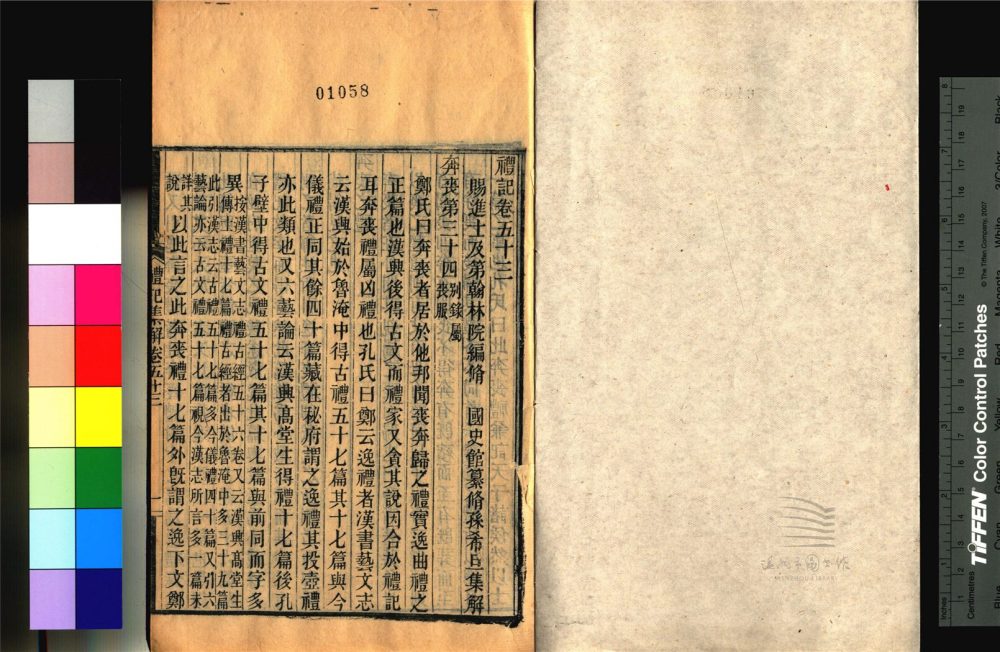 01058
禮記卷五十三
賜進士及第翰林院編脩 國史館纂脩孫希旦集解
奔喪第三十四 別錄屬喪服
鄭氏曰奔喪者居於他邦聞喪奔歸之禮實逸曲禮之
正篇也漢興後得古文而禮家又貪其說因合於禮記
耳奔喪禮屬凶禮也孔氏曰鄭云逸禮者漢書藝文志
云漢興始於魯淹中得古禮五十七篇其十七篇與今
儀禮正同其餘四十篇藏在秘府謂之逸禮其投壺禮
亦此類也又六藝論云漢興高堂生得禮十七篇後孔
子壁中得古文禮五十七篇其十七篇與前同而字多
異 按漢書藝文志禮古經五十六卷又云漢興高堂生
傳士禮十七篇禮古經者出於魯淹中多三十九篇
此引漢志云古禮五十七篇多今儀禮四十篇又引六
藝論亦云古文禮五十七篇視今漢志所言多一篇未
詳其說 以此言之此奔喪禮十七篇外旣謂之逸下文鄭
禮記集解卷五十三
一
TIFFEN Color Control Patches
© The Tiffen Company, 2007
Inches
Centimetres
WENZHOU LIBRARY